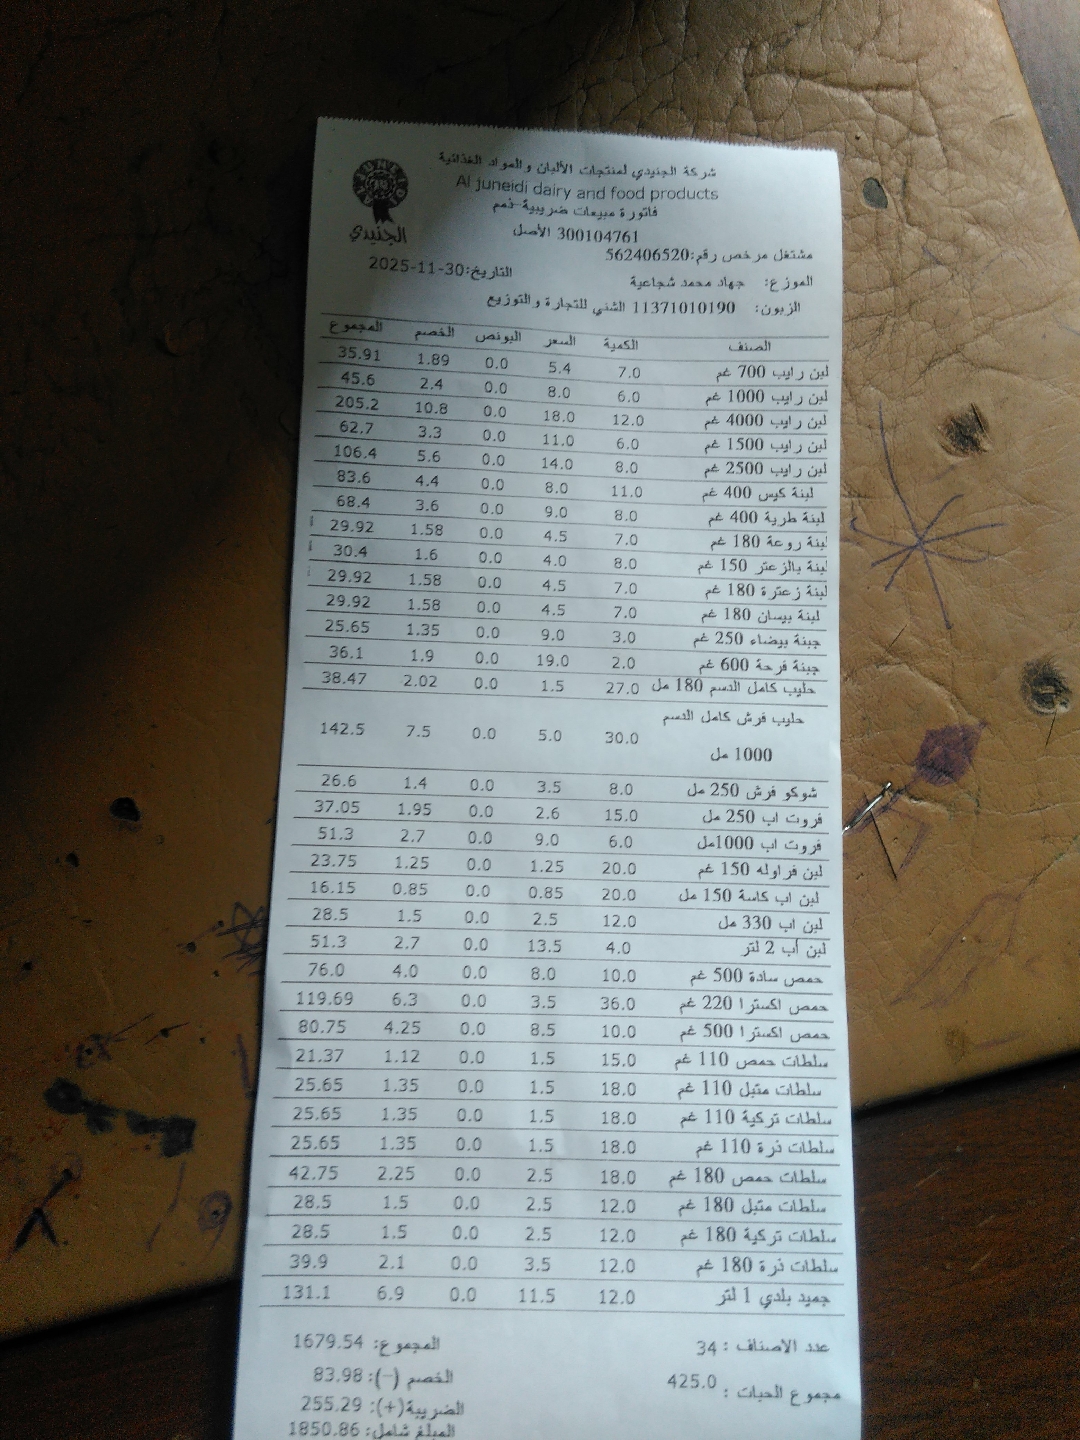 شركة الجنيدي لمنتجات الألبان والمواد الغذائية
Al juneidi dairy and food products
فاتورة مبيعات ضريبية-ذمم
300104761 الأصل
الجنيدي
مشتغل مرخص رقم:562406520
التاريخ:30-11-2025
الموزع: جهاد محمد شجاعية
الزبون: 11371010190 الشني للتجارة والتوزيع
الصنف الكمية السعر البونص الخصم المجموع
لبن رايب 700 غم 7.0 5.4 0.0 1.89 35.91
لبن رايب 1000 غم 6.0 8.0 0.0 2.4 45.6
لبن رايب 4000 غم 12.0 18.0 0.0 10.8 205.2
لبن رايب 1500 غم 6.0 11.0 0.0 3.3 62.7
لبن رايب 2500 غم 8.0 14.0 0.0 5.6 106.4
لبنة كيس 400 غم 11.0 8.0 0.0 4.4 83.6
لبنة طرية 400 غم 8.0 9.0 0.0 3.6 68.4
لبنة روعة 180 غم 7.0 4.5 0.0 1.58 29.92
لبنة بالزعتر 150 غم 8.0 4.0 0.0 1.6 30.4
لبنة زعترة 180 غم 7.0 4.5 0.0 1.58 29.92
لبنة بيسان 180 غم 7.0 4.5 0.0 1.58 29.92
جبنة بيضاء 250 غم 3.0 9.0 0.0 1.35 25.65
جبنة فرحة 600 غم 2.0 19.0 0.0 1.9 36.1
حليب كامل الدسم 180 مل 27.0 1.5 0.0 2.02 38.47
حليب فرش كامل الدسم
1000 مل 30.0 5.0 0.0 7.5 142.5
شوكو فرش 250 مل 8.0 3.5 0.0 1.4 26.6
فروت اب 250 مل 15.0 2.6 0.0 1.95 37.05
فروت اب 1000مل 6.0 9.0 0.0 2.7 51.3
لبن فراوله 150 غم 20.0 1.25 0.0 1.25 23.75
لبن اب كاسة 150 مل 20.0 0.85 0.0 0.85 16.15
لبن اب 330 مل 12.0 2.5 0.0 1.5 28.5
لبن أب 2 لتر 4.0 13.5 0.0 2.7 51.3
حمص سادة 500 غم 10.0 8.0 0.0 4.0 76.0
حمص اكسترا 220 غم 36.0 3.5 0.0 6.3 119.69
حمص اكسترا 500 غم 10.0 8.5 0.0 4.25 80.75
سلطات حمص 110 غم 15.0 1.5 0.0 1.12 21.37
سلطات متبل 110 غم 18.0 1.5 0.0 1.35 25.65
سلطات تركية 110 غم 18.0 1.5 0.0 1.35 25.65
سلطات ذرة 110 غم 18.0 1.5 0.0 1.35 25.65
سلطات حمص 180 غم 18.0 2.5 0.0 2.25 42.75
سلطات متبل 180 غم 12.0 2.5 0.0 1.5 28.5
سلطات تركية 180 غم 12.0 2.5 0.0 1.5 28.5
سلطات ذرة 180 غم 12.0 3.5 0.0 2.1 39.9
جميد بلدي 1 لتر 12.0 11.5 0.0 6.9 131.1
عدد الاصناف : 34 المجموع: 1679.54
مجموع الحبات : 425.0 الخصم (-): 83.98
الضريبة(+): 255.29
المبلغ شامل: 1850.86